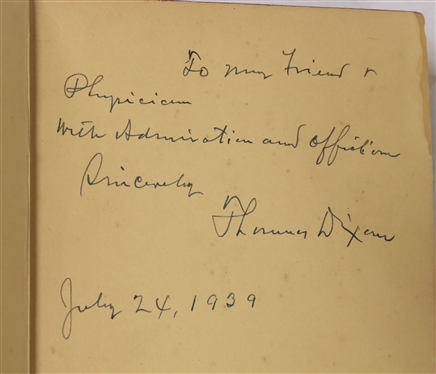 To my friend &
Physician
With Admiration and affection
Sincerely
Thomas Dixon
July 24, 1939